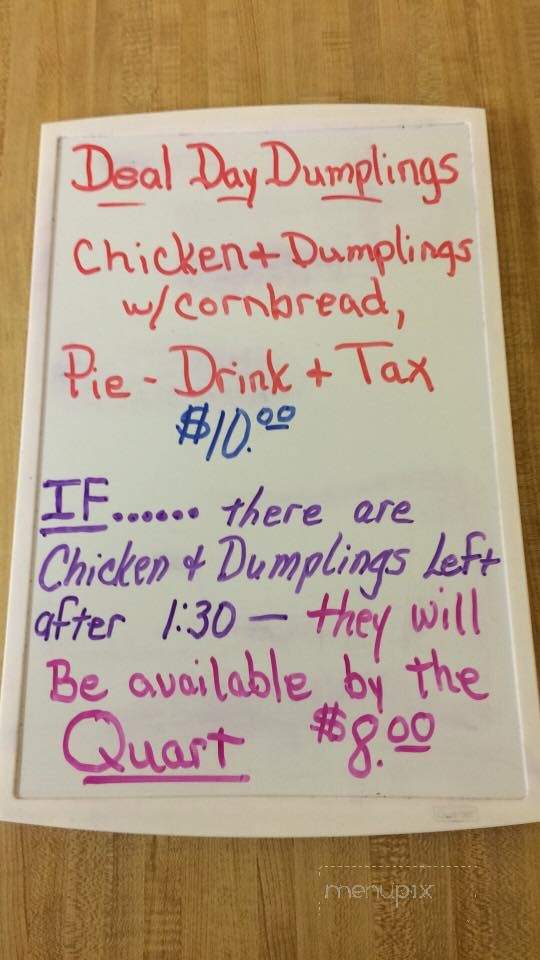 Deal Day Dumplings
Chicken + Dumplings
w/cornbread,
Pie - Drink + Tax
$10.00
IF...... there are
Chicken & Dumplings Left
after 1:30 — they will
Be available by the
Quart $8.00
menupix